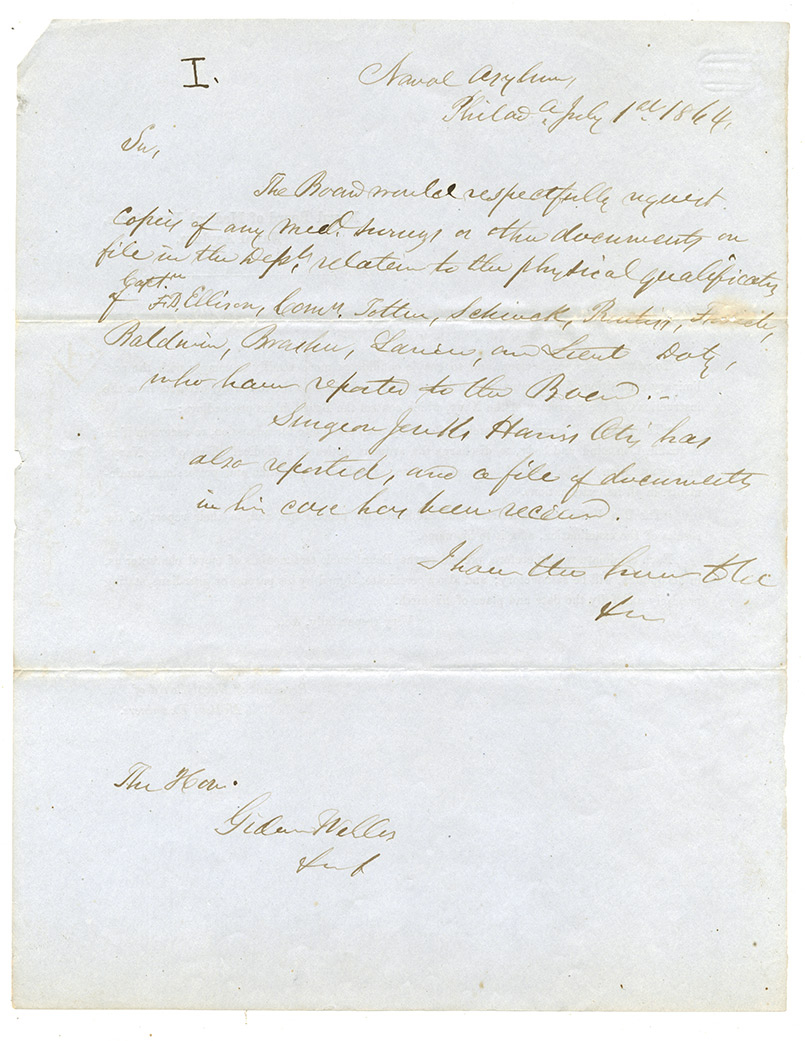 I.
Naval Asylum,
Philada. July 1st 1864.
Sir,
The Board would respectfully request
copies of any Med. Surveys or other documents on
file in the Dept. relation to the physical qualification
of Capt. F.D. Ellison, Comrs. Totten, Schenck,
Baldwin, Brasher, Lanier, and Lieut Doty,
who have reported to the Board.
Surgeon Jenks Harris Otis has
also reported, and a file of documents
in his case has been received.
I have the honor to be
&c
The Hon.
Gideon Welles